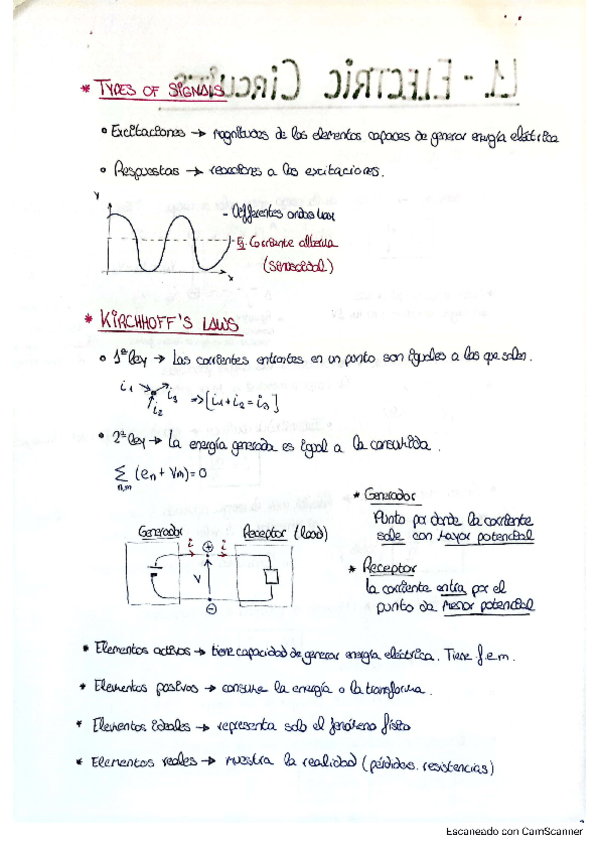 L1.- ELECTRIC CIRCUITS
* TYPES OF SIGNALS
• Excitaciones → magnitudes de los elementos capaces de generar energía eléctrica
• Respuestas → reacciones a las excitaciones.
y
- Differentes ondas
- Ej. Corriente alterna
(senoidal)
x
* KIRCHHOFF'S LAWS
• 1ª ley → Las corrientes entrantes en un punto son iguales a las que salen.
i1 i3 i2 => [i1 + i2 = i3]
• 2ª ley → La energía generada es igual a la consumida.
∑ (en + Vm) = 0
n,m
* Generador
Punto por donde la corriente
sale con mayor potencial
* Receptor
la corriente entra por el
punto de menor potencial
Generador Receptor (load)
i + i
V
-
• Elementos activos → tiene capacidad de generar energía eléctrica. Tiene f.e.m.
* Elementos pasivos → consume la energía o la transforma.
* Elementos ideales → representa solo el fenómeno físico
* Elementos reales → muestra la realidad (pérdidas, resistencias)
Escaneado con CamScanner